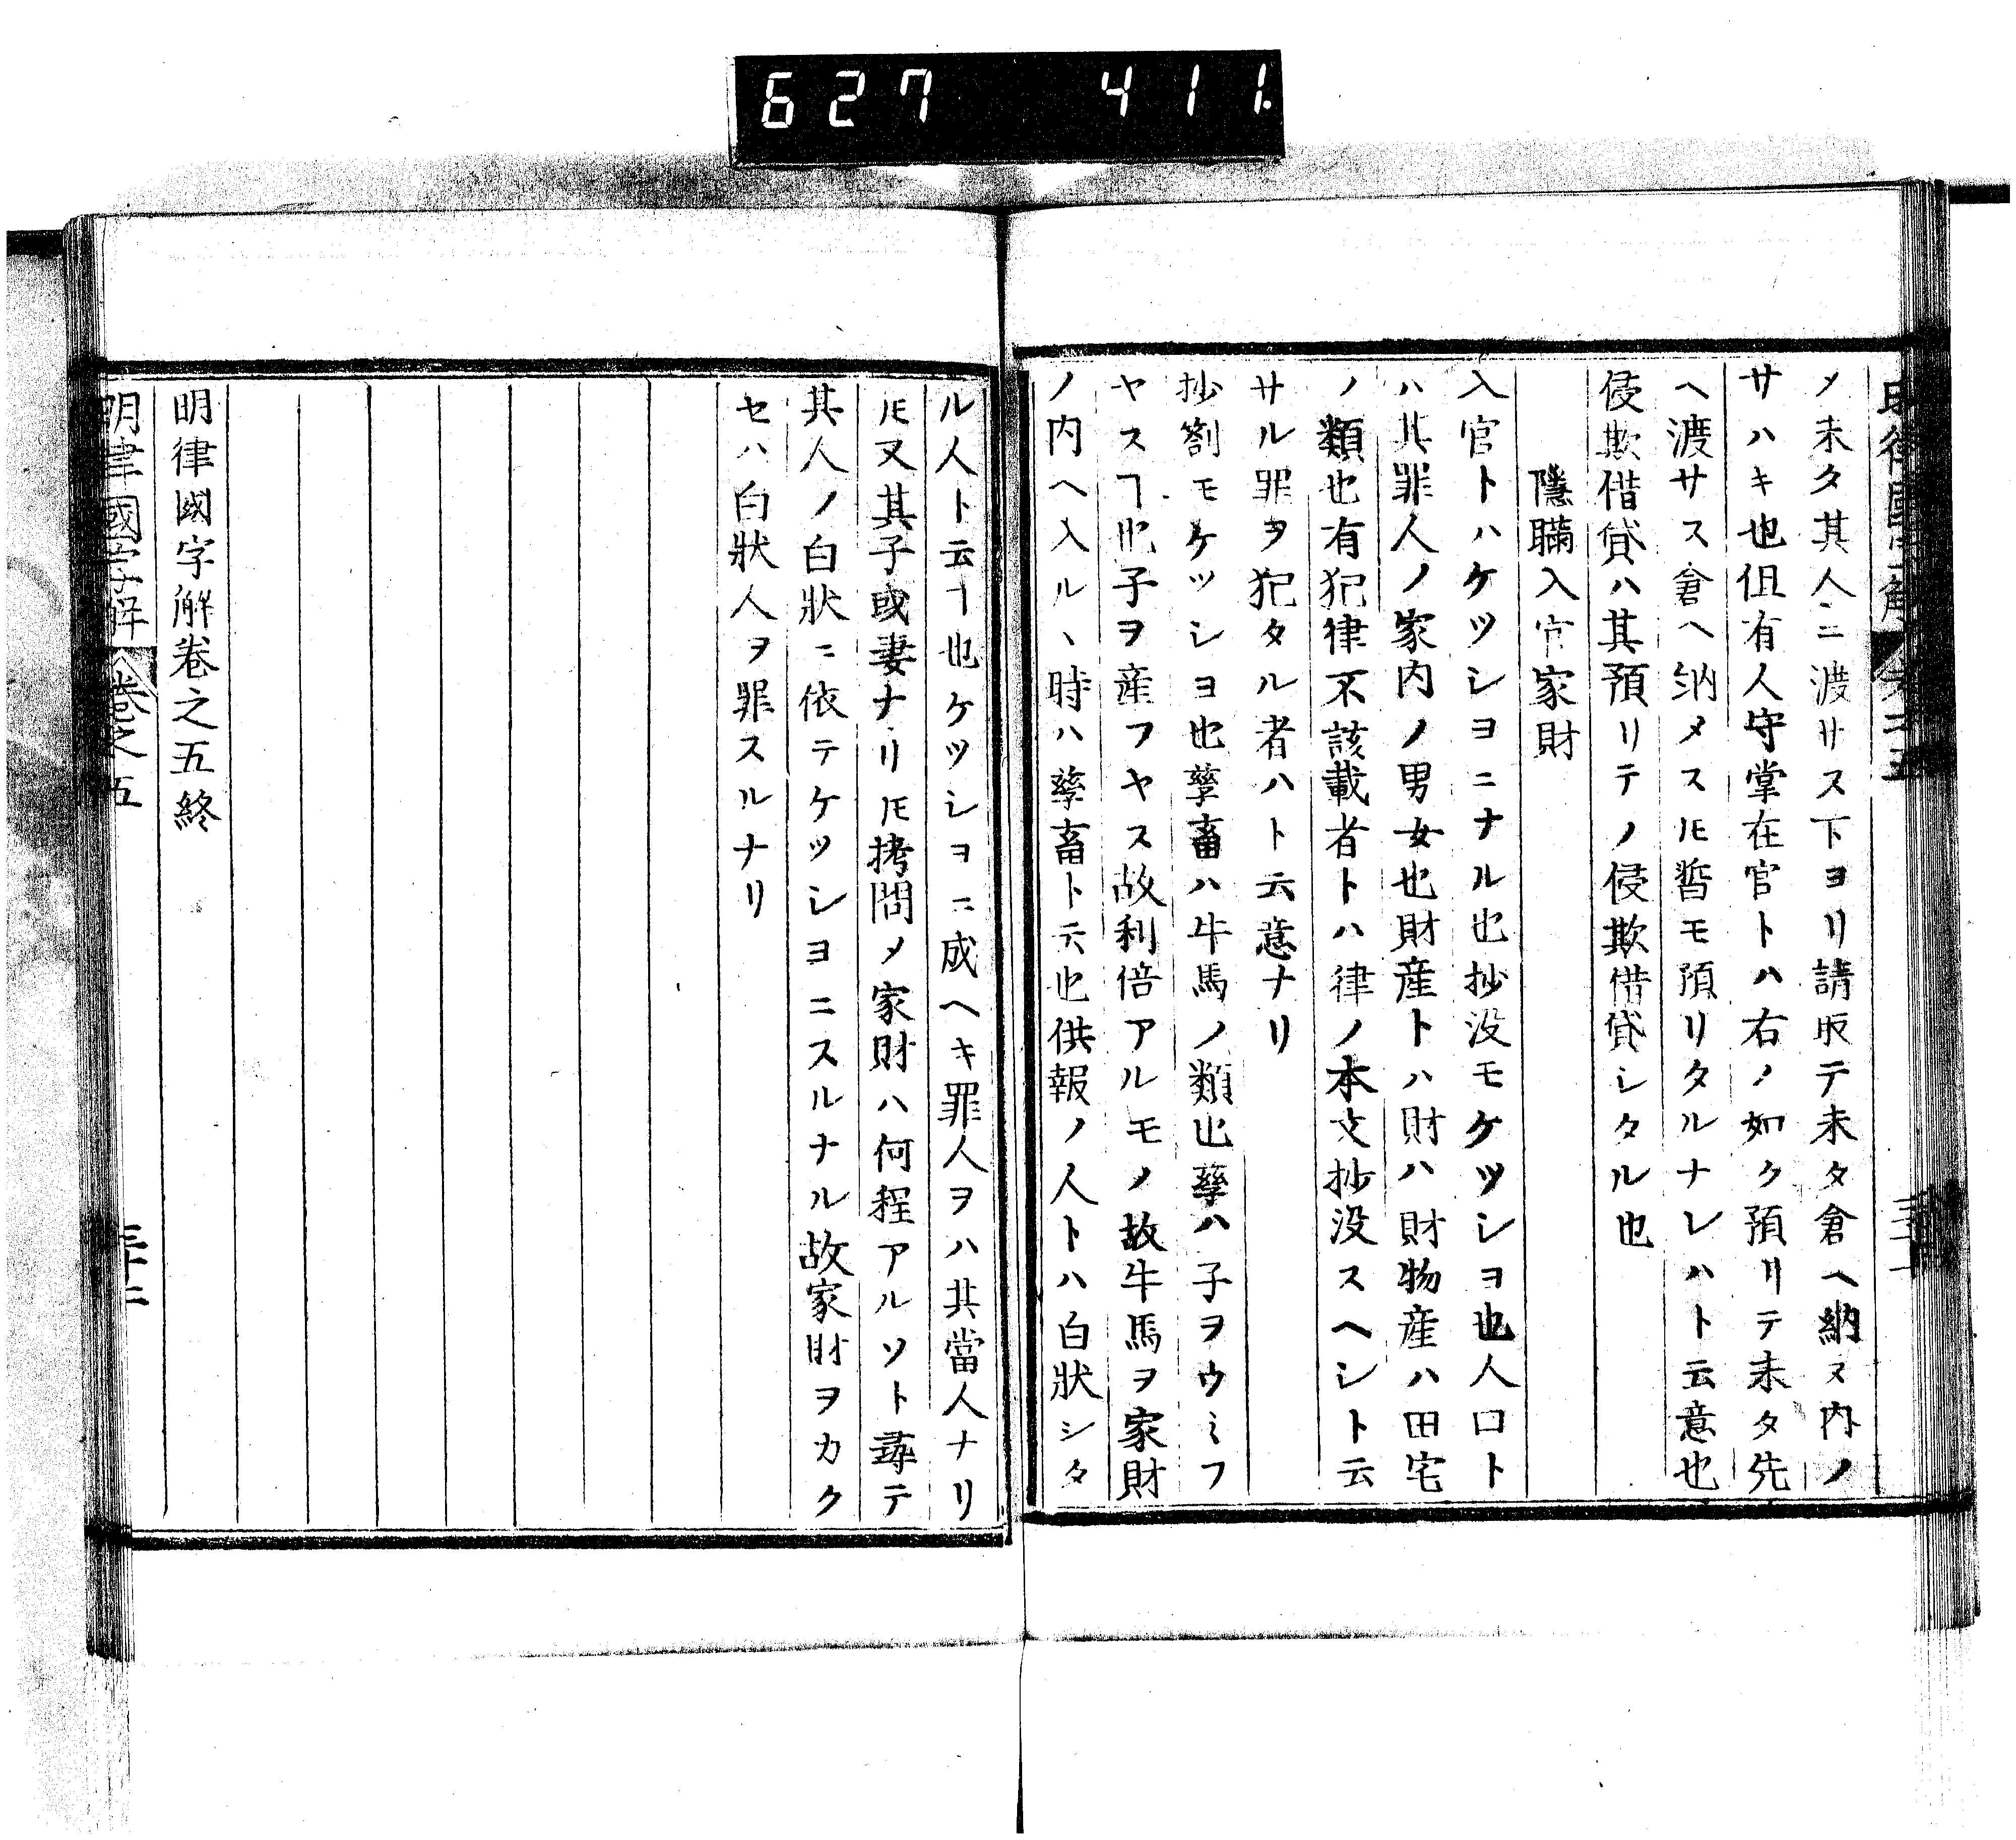 627 411.
明律國字解 卷之五
メ未タ其人ニ渡サス下ヨリ請取テ未タ倉ヘ納ヌ内ノ
サハキ也但有人守掌在官トハ右ノ如ク預リテ未タ先
ヘ渡サス倉ヘ納メスㇳモ暫モ預リタルナレハト云意也
侵欺借貸ハ其預リテノ侵欺借貸シタル也
隱瞞入官家財
入官トハケツシヨニナル也抄没モケツシヨ也人口ト
ハ其罪人ノ家内ノ男女也財産トハ財ハ財物産ハ田宅
ノ類也有犯律不該載者トハ律ノ本文抄没スヘシト云
サル罪ヲ犯タル者ハト云意ナリ
抄劄モケツシヨ也孳畜ハ牛馬ノ類也孳ハ子ヲウミフ
ヤスヿ也子ヲ産フヤス故利倍アルモノ故牛馬ヲ家財
ノ内ヘ入ルヽ時ハ孳畜ト云也供報ノ人トハ白状シタ
ル人ト云ヿ也ケツシヨニ成ヘキ罪人ヲハ其當人ナリ
ㇳモ又其子或妻ナリㇳモ拷問メ家財ハ何程アルソト尋テ
其人ノ白狀ニ依テケツシヨニスルナル故家財ヲカク
セハ白狀人ヲ罪スルナリ
明律國字解卷之五終
明律國字解 卷之五 三十二